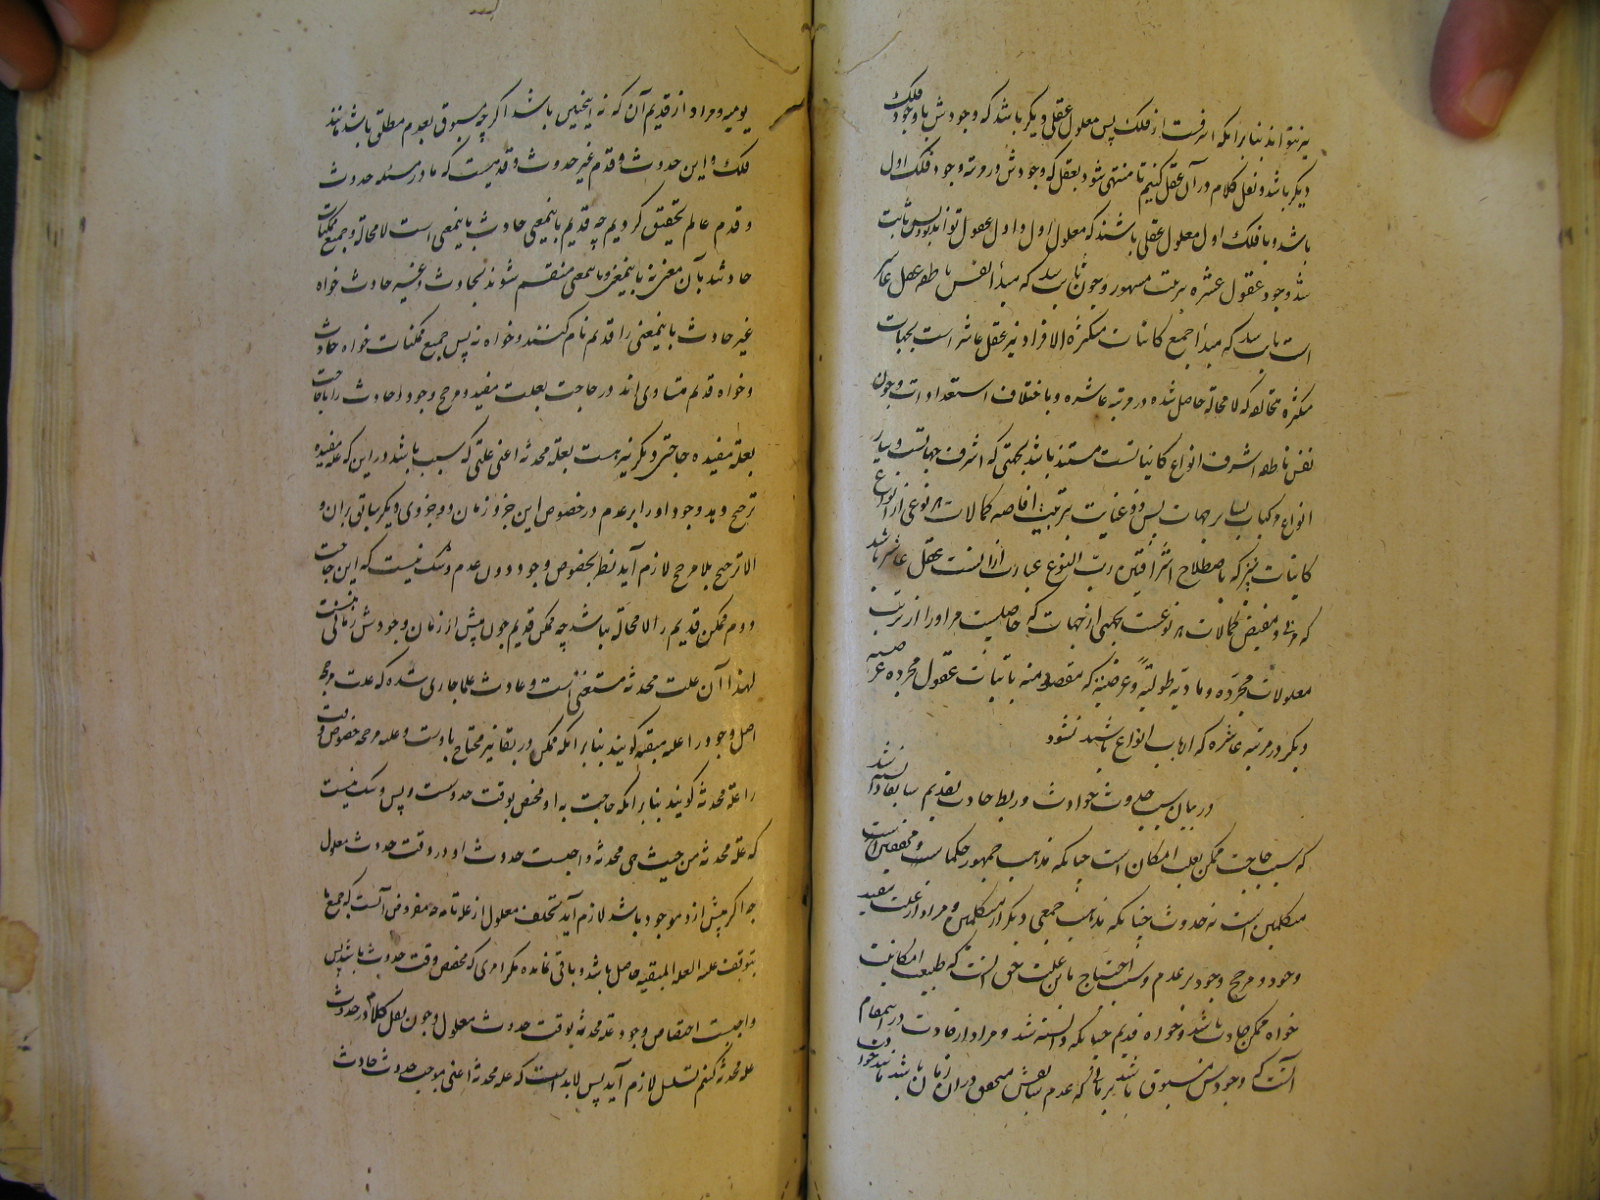 نیز نتواند بنابر آنکه اشرفست از فلک پس معلول عقلی دیگر باشد که وجودش با وجود فلک
دیگر باشد و نقل کلام در آن عقل کنیم تا منتهی شود بعقل که وجودش در مرتبه وجود فلک اول
باشد و با فلک اول معلول عقلی باشند که معلول اول و اول عقول تواند بود پس ثابت
شد وجود عقول عشره بترتیب مشهور و چون ثابت شد که مبدأ نفس ناطقه عقل عاشر
است ثابت شد که مبدأ جمیع کائنات متکثرة الافراد نیز عقل عاشر است بجهات
متکثره متخالفه که لا محالة حاصل شده در مرتبه عاشره و باختلاف استعدادات و چون
نفس ناطقه اشرف انواع کائناتست مستند باشد بجهتی که اشرف جهاتست و سایر
انواع و کائنات بسایر جهات پس و عنایت بترتیب افاضه کمالات هر نوعی از انواع
کائنات نیز که باصطلاح اشراقیین رب النوع عبارت از آنست عقل عاشر باشد
که مفیض کمالات هر نوعست بجهتی از جهات که حاصلست مر او را از ترتب
معلولات مجرده و مادیه طولیة و عرضیة که مقصد منه باثبات عقول مجرده عرضیه
دیگر در مرتبه عاشره که ارباب انواع باشند نشود
در بیان سبب حدوث حوادث و ربط حادث بقدیم سابقا دانسته شد
که سبب حاجت ممکن بعلت امکان است چنانکه مذهب جمهور حکماست و محققین
متکلمین است نه حدوث چنانکه مذهب جمعی دیگر از متکلمین و مراد از علت مفید
وجود و مرجح وجود بر عدم و سبب احتیاج باین علت نیست که طبیعت امکانیت
خواه ممکن حادث باشد و خواه قدیم چنانکه دانسته شد و مراد از حادث در اینمقام
آنست که وجودش مسبوق باشد بزمانی که عدم سابقش متحقق در آن زمان باشد مانند حوادث
یومیه و مراد از قدیم آن که نه اینچنین باشد اگر چه مسبوق بعدم مطلق باشد مانند
فلک و این حدوث و قدم غیر حدوث و قدمیست که ما در مسئله حدوث
و قدم عالم تحقیق کردیم چه قدیم باینمعنی حادث باینمعنی است لا محالة و جمیع ممکنات
حادثند بآن معنی نه باینمعنی و باینمعنی منقسم شوند بحادث و غیر حادث خواه
غیر حادث باینمعنی را قدیم نام کنند و خواه نه پس جمیع ممکنات خواه حادث
و خواه قدیم متساوی اند در حاجت بعلت مفید و مرجح وجود اما حادث را با حاجت
بعله مفیده حاجتی دیگر نیز هست بعله محدثه اعنی علتی که سبب باشد در این که علة مفیده
ترجیح دهد وجود او را بر عدم در خصوص این جزو زمان دون جزوی دیگر سابق بر آن و
الا ترجیح بلا مرجح لازم آید نظر بخصوص وجود دون عدم و شک نیست که این حاجت
دوم ممکن قدیم را لا محالة نباشد چه ممکن قدیم چون پیش از زمان وجودش زمانی نیست
لهذا از آن علت محدثه مستغنی است و عادت علما جاری شده که علت مرجح
اصل وجود را علة مبقیه گویند بنابر آنکه ممکن در بقا نیز محتاج باوست و علة مرجحه خصوص وقت
را علة محدثه گویند بنابر آنکه حاجت به او مختص بوقت حدوثست و بس و شک نیست
که علة محدثه من حیث هی محدثة واجبست حدوث او در وقت حدوث معلول
چه اگر پیش از او موجود باشد لازم آید تخلف معلول از علة تامه چه مفروض آنست که جمیع ما
یتوقف علیه العلة المبقیه حاصل باشد و باقی نمانده مگر امری که مخصص وقت حدوث باشد پس
واجبست اختصاص وجود علة محدثه بوقت حدوث معلول و چون نقل کلام در حدوث
علة محدثه کنیم تسلسل لازم آید پس لابد است که علة محدثه اعنی موجب حدوث حادث